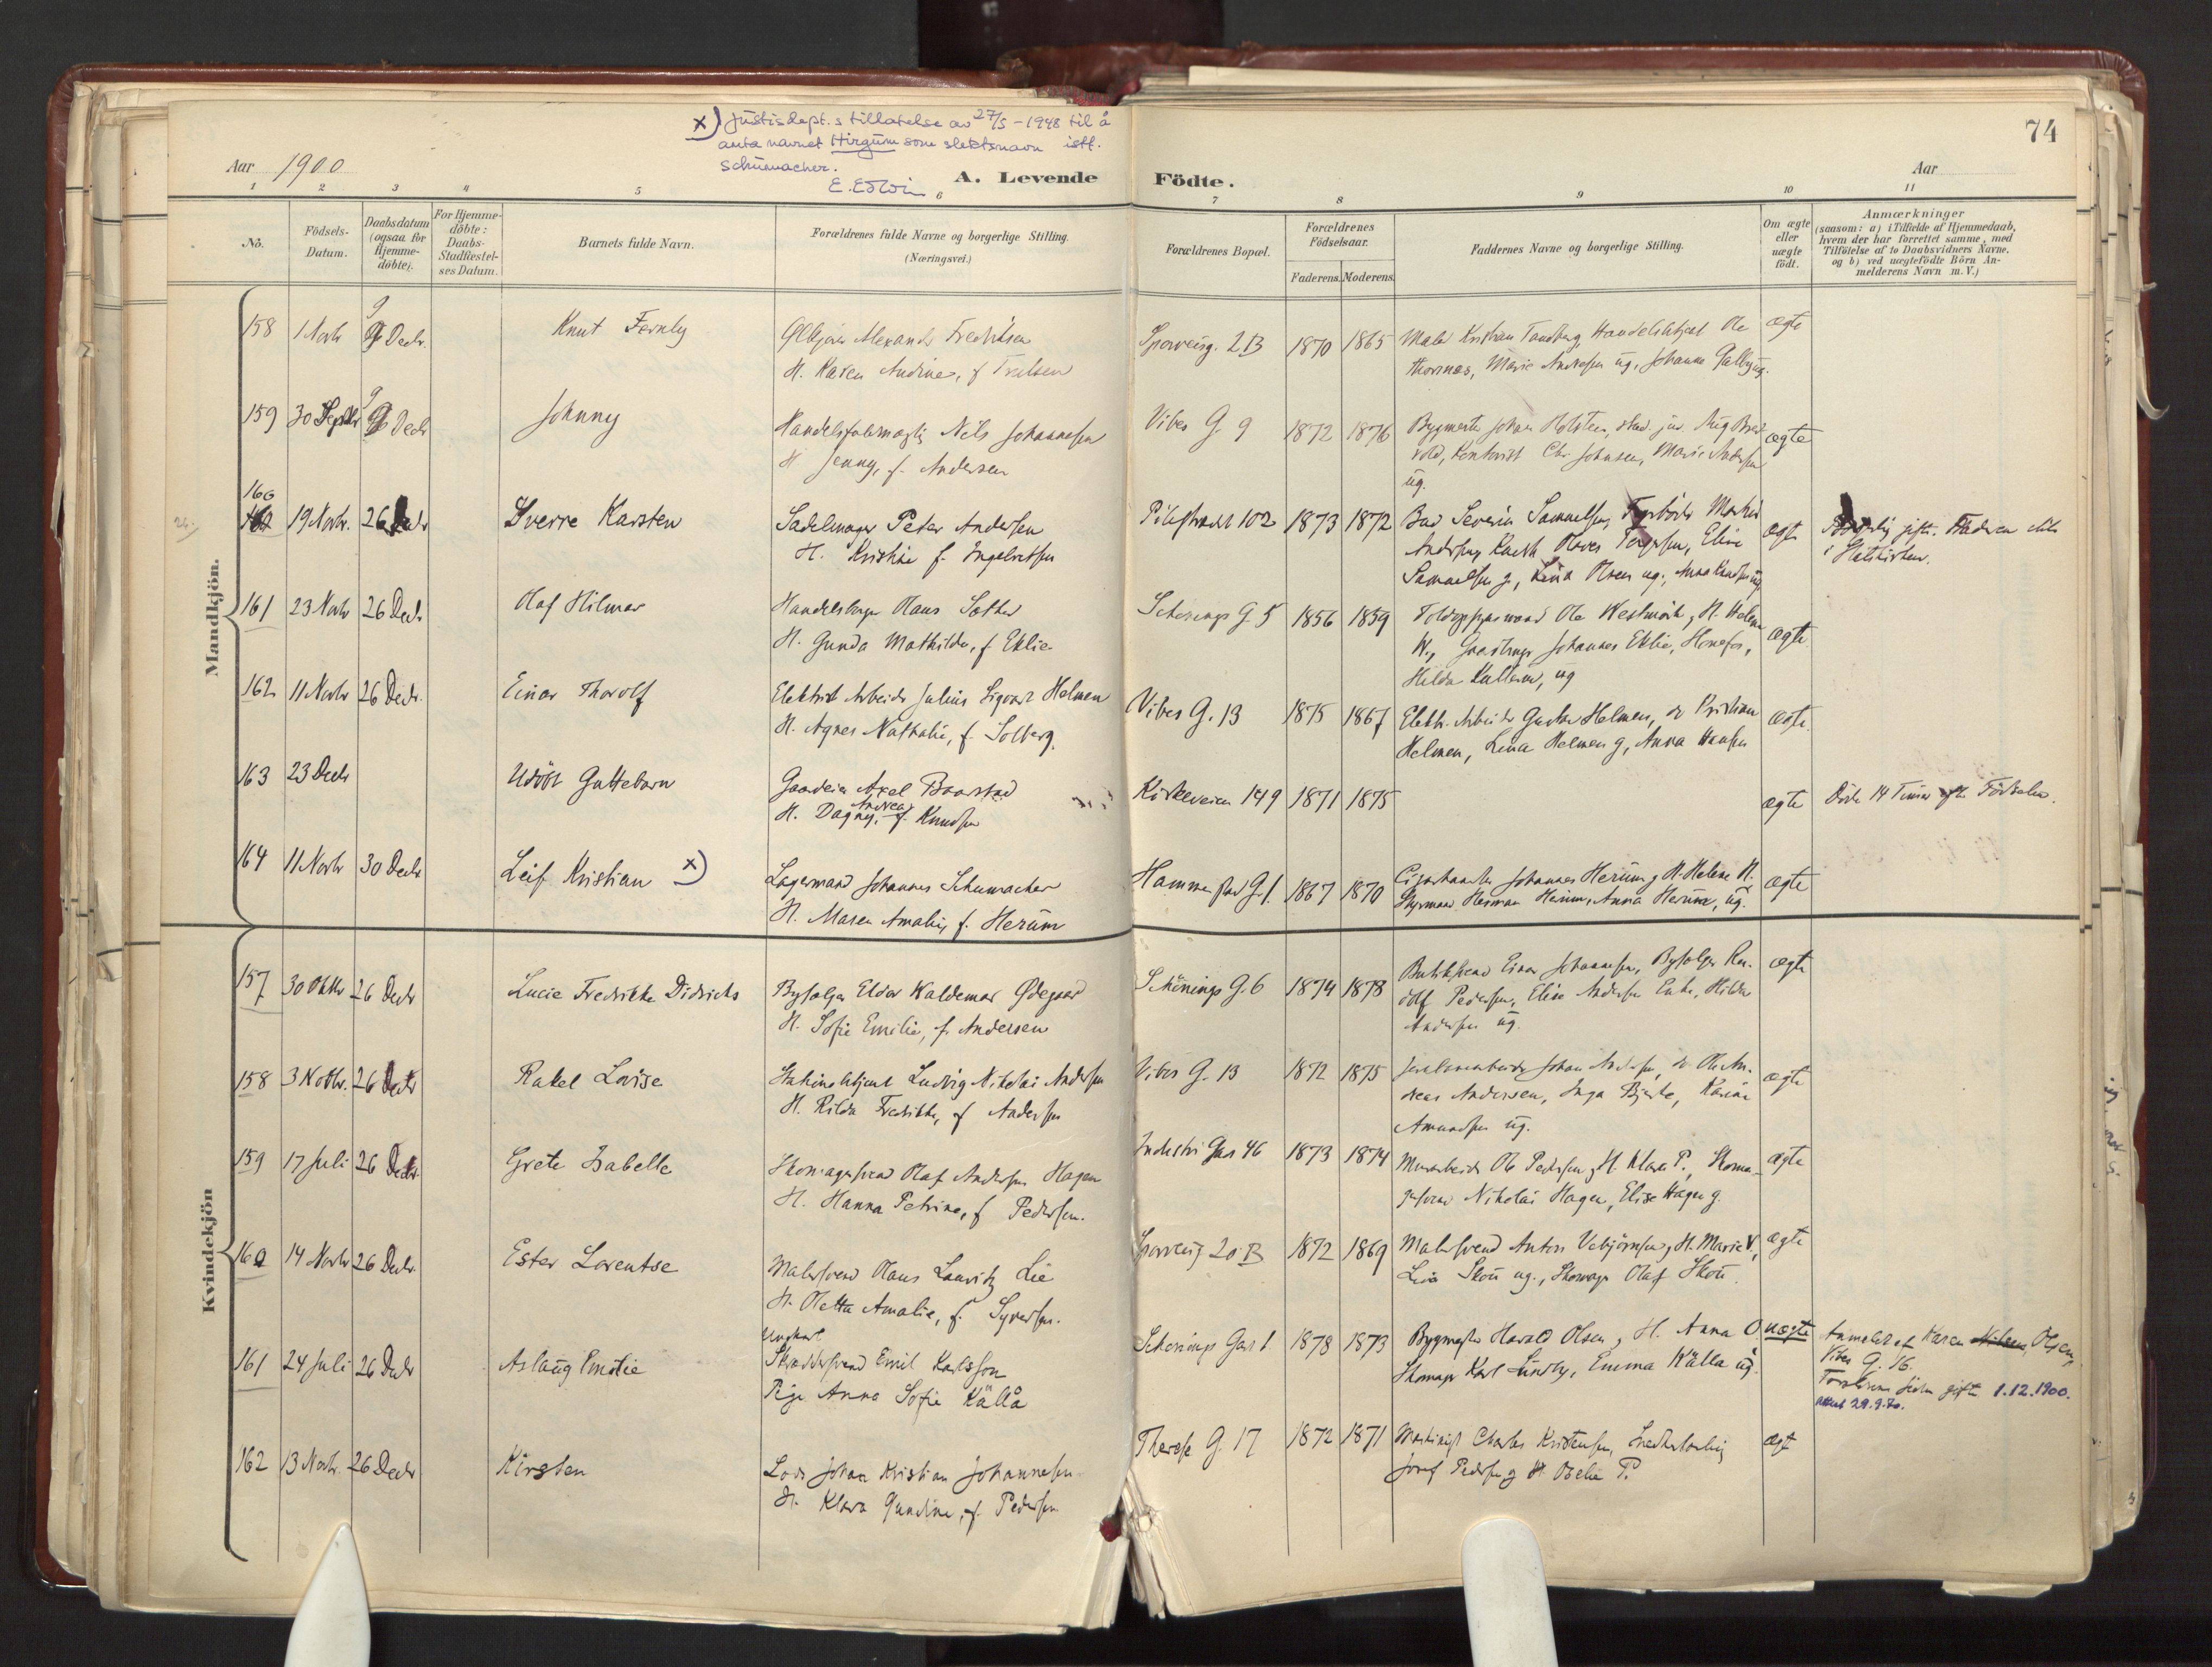 x) Justisdept.s tillatelse av 27/5 - 1948 til å
anta navnet Hirgum som slektsnavn istf.
Schumacher.
E. Edwin
74
Aar 1900
A. Levende Födte.
Aar
1 2 3 4 5 6 7 8 9 10 11
Nò.
Födsels-
Datum.
Daabsdatum
(ogsaa for
Hjemme-
döbte).
For Hjemme-
döbte:
Daabs-
Stadfæstel-
ses Datum.
Barnets fulde Navn.
Forældrenes fulde Navne og borgerlige Stilling.
(Næringsvei.)
Forældrenes Bopæl.
Forældrenes
Födselsaar.
Faderens. Moderens.
Faddernes Navne og borgerlige Stilling.
Om ægte
eller
uægte
födt.
Anmærkninger
(saasom: a) i Tilfælde af Hjemmedaab,
hvem der har forrettet samme, med
Tilföielse af to Daabsvidners Navne.
og b) ved uægtefödte Börn An-
melderens Navn m.V.)
Mandkjön.
158 1 Novbr 9 Decbr. Knut Fernly
Alexander Fredriksen
H. Karen Andine, f.
Sporveisg. 2B 1870 1865
Maler Kristian Tandberg, Handelsbetjent Ole
Thornæs, Marie Andersen ug, Johanne Galby ug.
ægte
159 30 Septbr 9 Decbr Johnny
Handelsfuldmægtig Nils Johannesen
H. Jenny, f. Andersen
Vibes G 9 1872 1876
Bygmester Johan Holsten, stud. jur. Aug Bred
vold, Kontorist Chr Johnsen, Marie Andersen
ug.
ægte
160 19 Novbr. 26 Decbr Sverre Karsten
Sadelmager Peter Andersen
H. Kristine f. Ingebretsen
Pilestrædet 102 1873 1872
Severin Samuelsen, Martin
Andersen, Olaves Torgersen, Eline
Samuelsen g, Lina Olsen ug.,
ægte
Borgerlig gift. Faderen ikke
i Statskirken.
161 23 Novbr 26 Decbr Olaf Hilmar
Handelsborger Olaus Sæther
H. Gunda Mathilde, f. Eklie
Schönings G. 5 1856 1859
Toldopsynsmand Ole Westmark, H. Helene
W., Johannes Eklie, Hönefos,
Hilda Kullerud, ug
ægte
162 11 Novbr 26 Decbr. Einar Thorolf
Elektrisk Arbeider Julius Sigvart Helmen
H. Agnes Nathalie, f. Solberg.
Vibes G. 13 1875 1867
Elektr. Arbeider Gustav Helmen, do Kristian
Helmen, Lina Helmen g, Anna Hansen
ægte.
163 23 Decbr Udöbt Guttebarn
Gaardeier Axel Baarstad
Andrea
H. Dagny, f. Knudsen
Kirkeveien 149 1871 1875
ægte
Döde 14 Timer efter Födselen.
164 11 Novbr 30 Decbr Leif Kristian x)
Lagermand Johannes Schumacher
H. Maren Amalie, f. Herum
Hammerstad G. 1. 1867 1870
Cigarhandler Johannes Herum, H. Helene H.
Styrmand Herman Herum, Anna Herum, ug.
ægte
Kvindekjön
157 30 Oktbr 26 Decbr Lucie Fredrikke Didricks
Bysælger Eldor Waldemar Ödegaard
H. Sofie Emilie, f. Andersen
Schönings G. 6 1874 1878
Butiksvend Einar Johannesen, Bysælger Ru-
dolf Pedersen, Elise Andersen Enke, Hilda
Andersen ug.
ægte
158 3 Novbr. 26 Decbr Rakel Lovise
Stationsbetjent Ludvig Nikolai Andersen
H. Hilda Fredrikke, f Andersen
Vibes G. 13 1872 1875
Jernbanearbeider Johan Andersen, do Ole An-
dreas Andersen, Inga Bjerke, Karine
Amundsen ug.
ægte
159 17 Juli 26 Decbr. Grete Isabelle
Skomagersvend Olaf Andersen Hagen
H. Hanna Petrine, f Pedersen.
Industri Gaden 46 1873 1874
Murarbeider Ole Pedersen, H. Klara P., Skoma-
gersvend Nikolai Hagen, Elise Hagen g.
ægte
160 14 Novbr 26 Decbr. Ester Lorentse
Malersvend Olaus Lauritz Lie
H. Oletta Amalie, f. Syversen.
Sporveisg 20 B 1872 1869
Malersvend Anton Vebjörnsen, H. Marie V.,
Lina Skou ug., Skomager Olaf Skou.
ægte
161 24 Juli 26 Decbr Aslaug Emilie
Ungkarl
Skræddersvend Emil Karlsson
Pige Anna Sofie Källå
Schönings Gade 1 1878 1873
Bygmester Harald Olsen, H. Anna O
Skomager Karl Lundby, Emma Källa ug.
uægte
Anmeldt af Karen Nilsen, Olsen,
Vibes G. 16.
Forældrene siden gift 1.12.1900.
attest 29.9.70.
162 13 Novbr. 26 Decbr Kirsten
Lods Johan Kristian Johannesen
H. Klara Gundine, f. Pedersen
Therese G. 17 1872 1871
Maskinist Charles Kristensen,
Josef Pedersen, H. Oselie P.
ægte